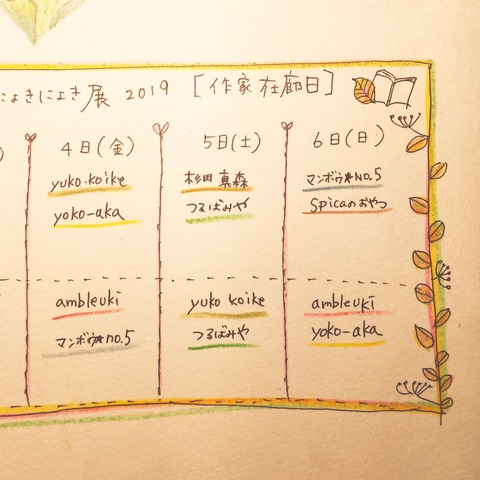 にょきにょき展 2019 [作家在廊日]
4日(金)
yuko koike
yoko-aka
ambleuki
マンボウ★no.5
5日(土)
杉田真森
つるばみや
yuko koike
つるばみや
6日(日)
マンボウ★NO.5
Spicaのおやつ
ambleuki
yoko-aka